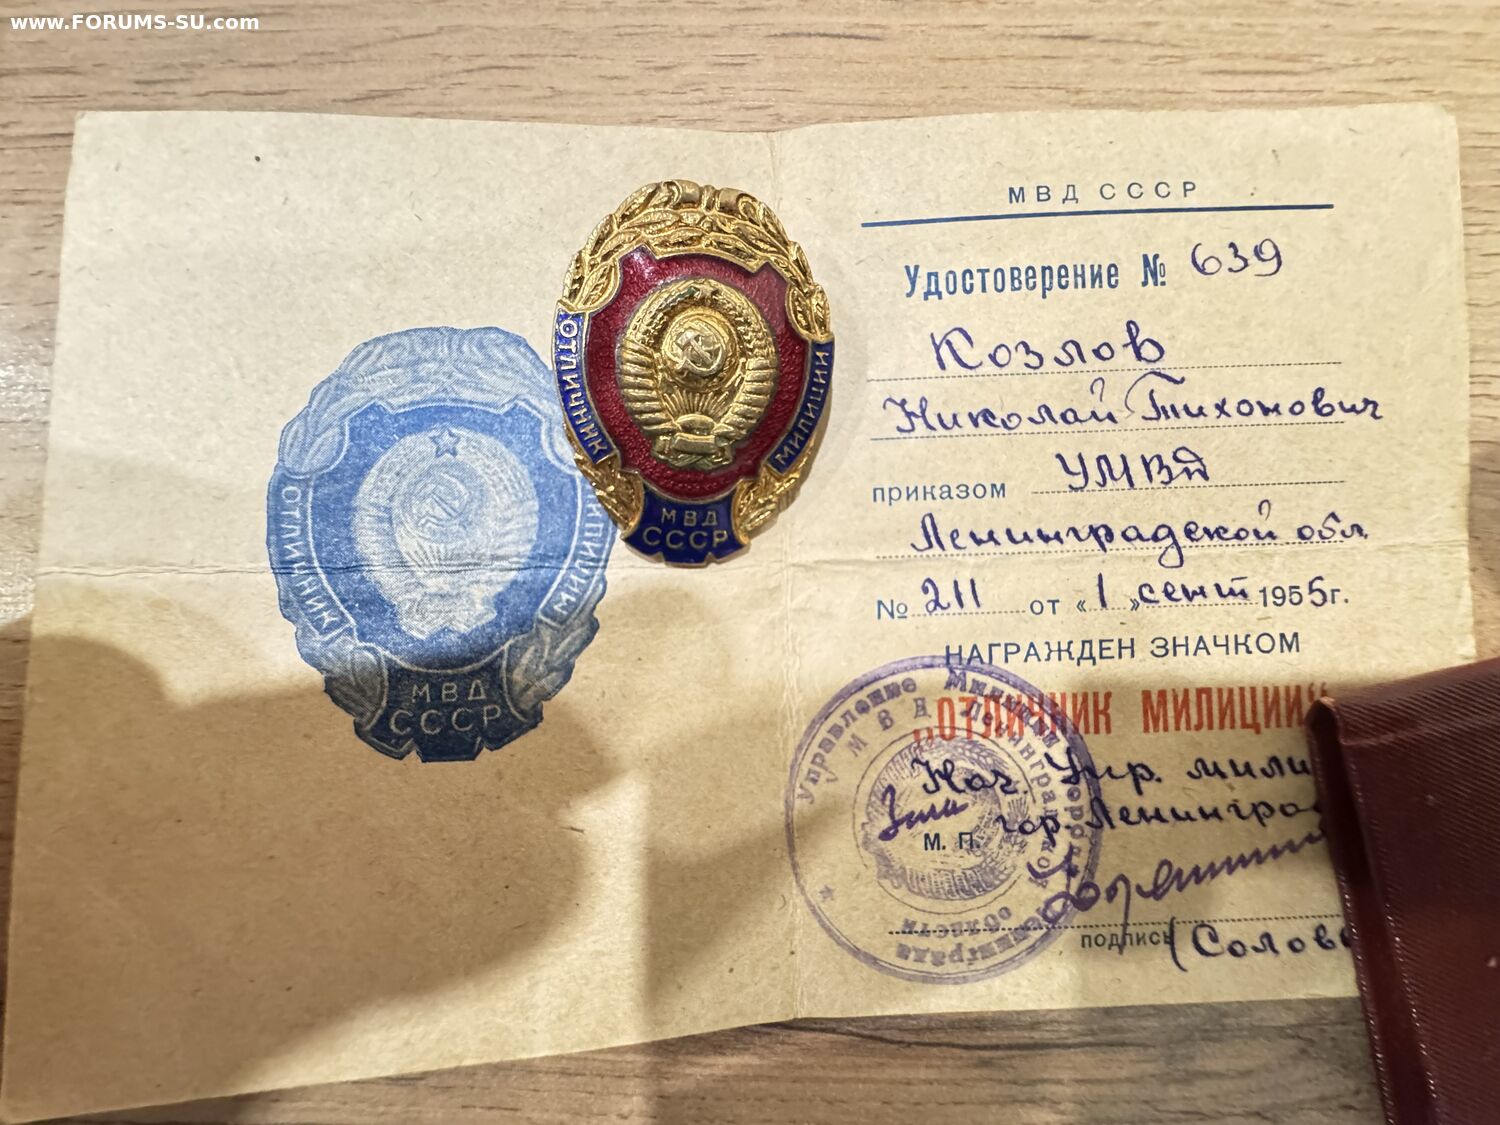 www.FORUMS-SU.com
ОТЛИЧНИК
МИЛИЦИИ
МВД
СССР
ОТЛИЧНИК
МИЛИЦИИ
МВД
СССР
МВД СССР
Удостоверение № 639
Козлов
Николай Тихонович
приказом УМВД
Ленинградской обл.
№ 211 от «1» сент 1955г.
НАГРАЖДЕН ЗНАЧКОМ
„ОТЛИЧНИК МИЛИЦИИ“
Нач. Упр. мили
гор. Ленингра
М. П.
подпись (Солов
Управление Милиции города Ленинграда
УМВД Ленинградской области